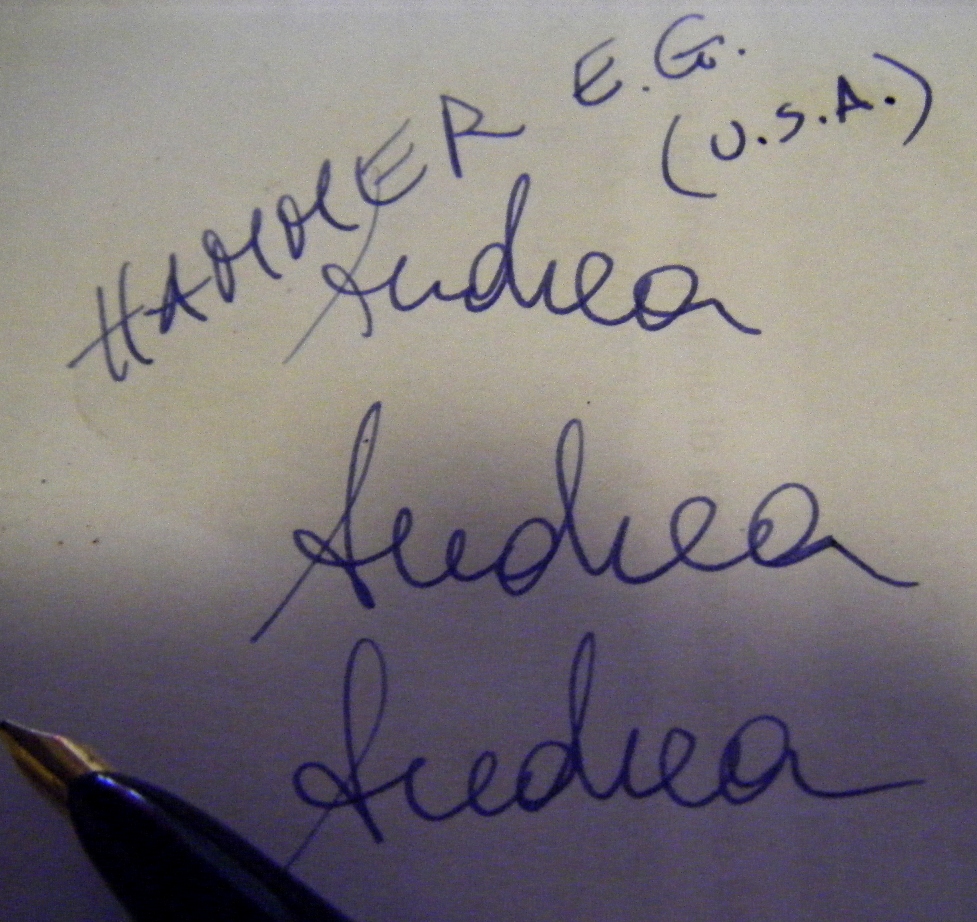 HAMMER E.G.
(U.S.A.)
Andrea
Andrea
Andrea